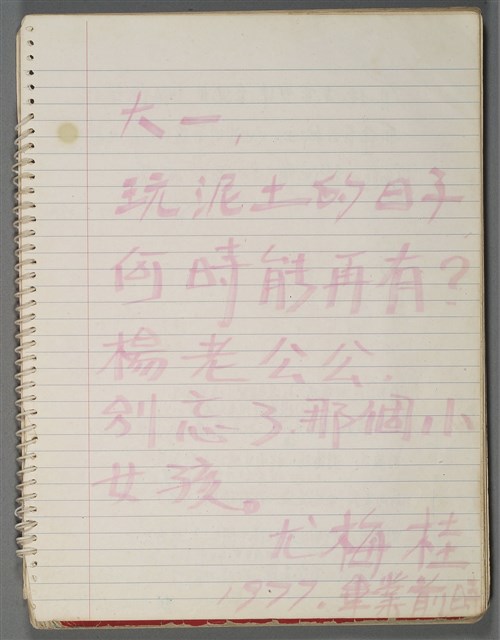 大一，
玩泥土的日子
何時能再有？
楊老公公．
別忘了那個小
女孩。
尤梅桂
1977.畢業前日